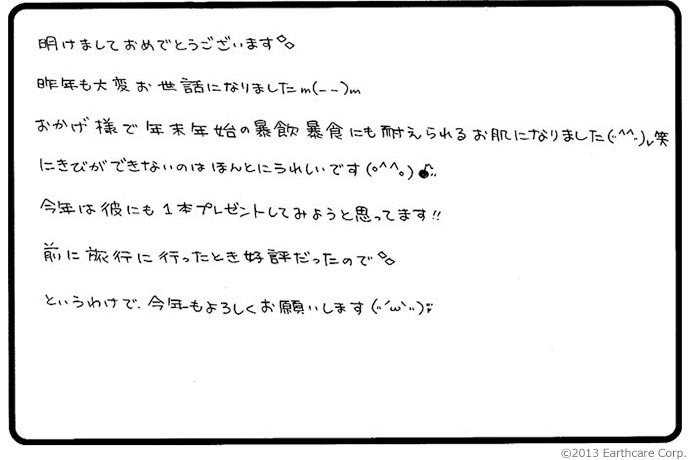 明けましておめでとうございます
昨年も大変お世話になりましたm(--)m
おかげ様で年末年始の暴飲暴食にも耐えられるお肌になりました(·^^·)v笑
にきびができないのはほんとにうれしいです(o^^o)♪
今年は彼にも1本プレゼントしてみようと思ってます!!
前に旅行に行ったとき好評だったので
というわけで、今年もよろしくお願いします(´ω`)
©2013 Earthcare Corp.